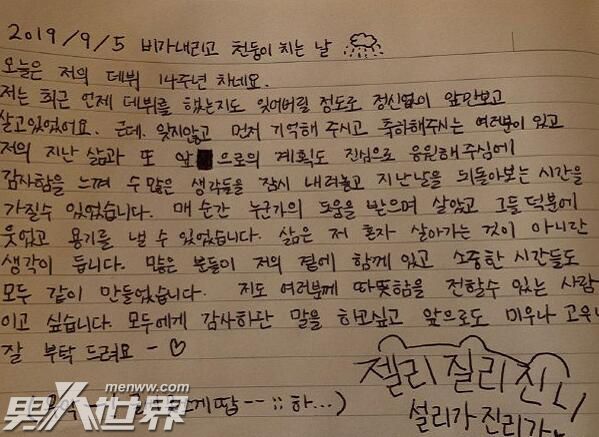 2019/9/5 비가내리고 천둥이 치는 날
오늘은 저의 데뷔 14주년 차네요.
저는 최근 언제 데뷔를 했는지도 잊어버릴 정도로 정신없이 앞만보고
살고있었어요. 근데. 잊지않고 먼저 기억해 주시고 축하해주시는 여러분이 있고
저의 지난 삶과 또 앞으로의 계획도 진심으로 응원해주심에
감사함을 느껴 수많은 생각들을 잠시 내려놓고 지난날을 뒤돌아보는 시간을
가질수 있었습니다. 매 순간 누군가의 도움을 받으며 살았고 그들 덕분에
웃었고 용기를 낼 수 있었습니다. 삶은 저 혼자 살아가는 것이 아니란
생각이 듭니다. 많은 분들이 저의 곁에 함께 있고 소중한 시간들도
모두 같이 만들었습니다. 저도 여러분께 따뜻함을 전할수 있는 사람
이고 싶습니다. 모두에게 감사하단 말을 하고싶고 앞으로도 미우나 고우나
잘 부탁 드려요 - ♡
젤리 질리 진리
설리가 진리가
땁--;; 하...)
menww.com
男人世界